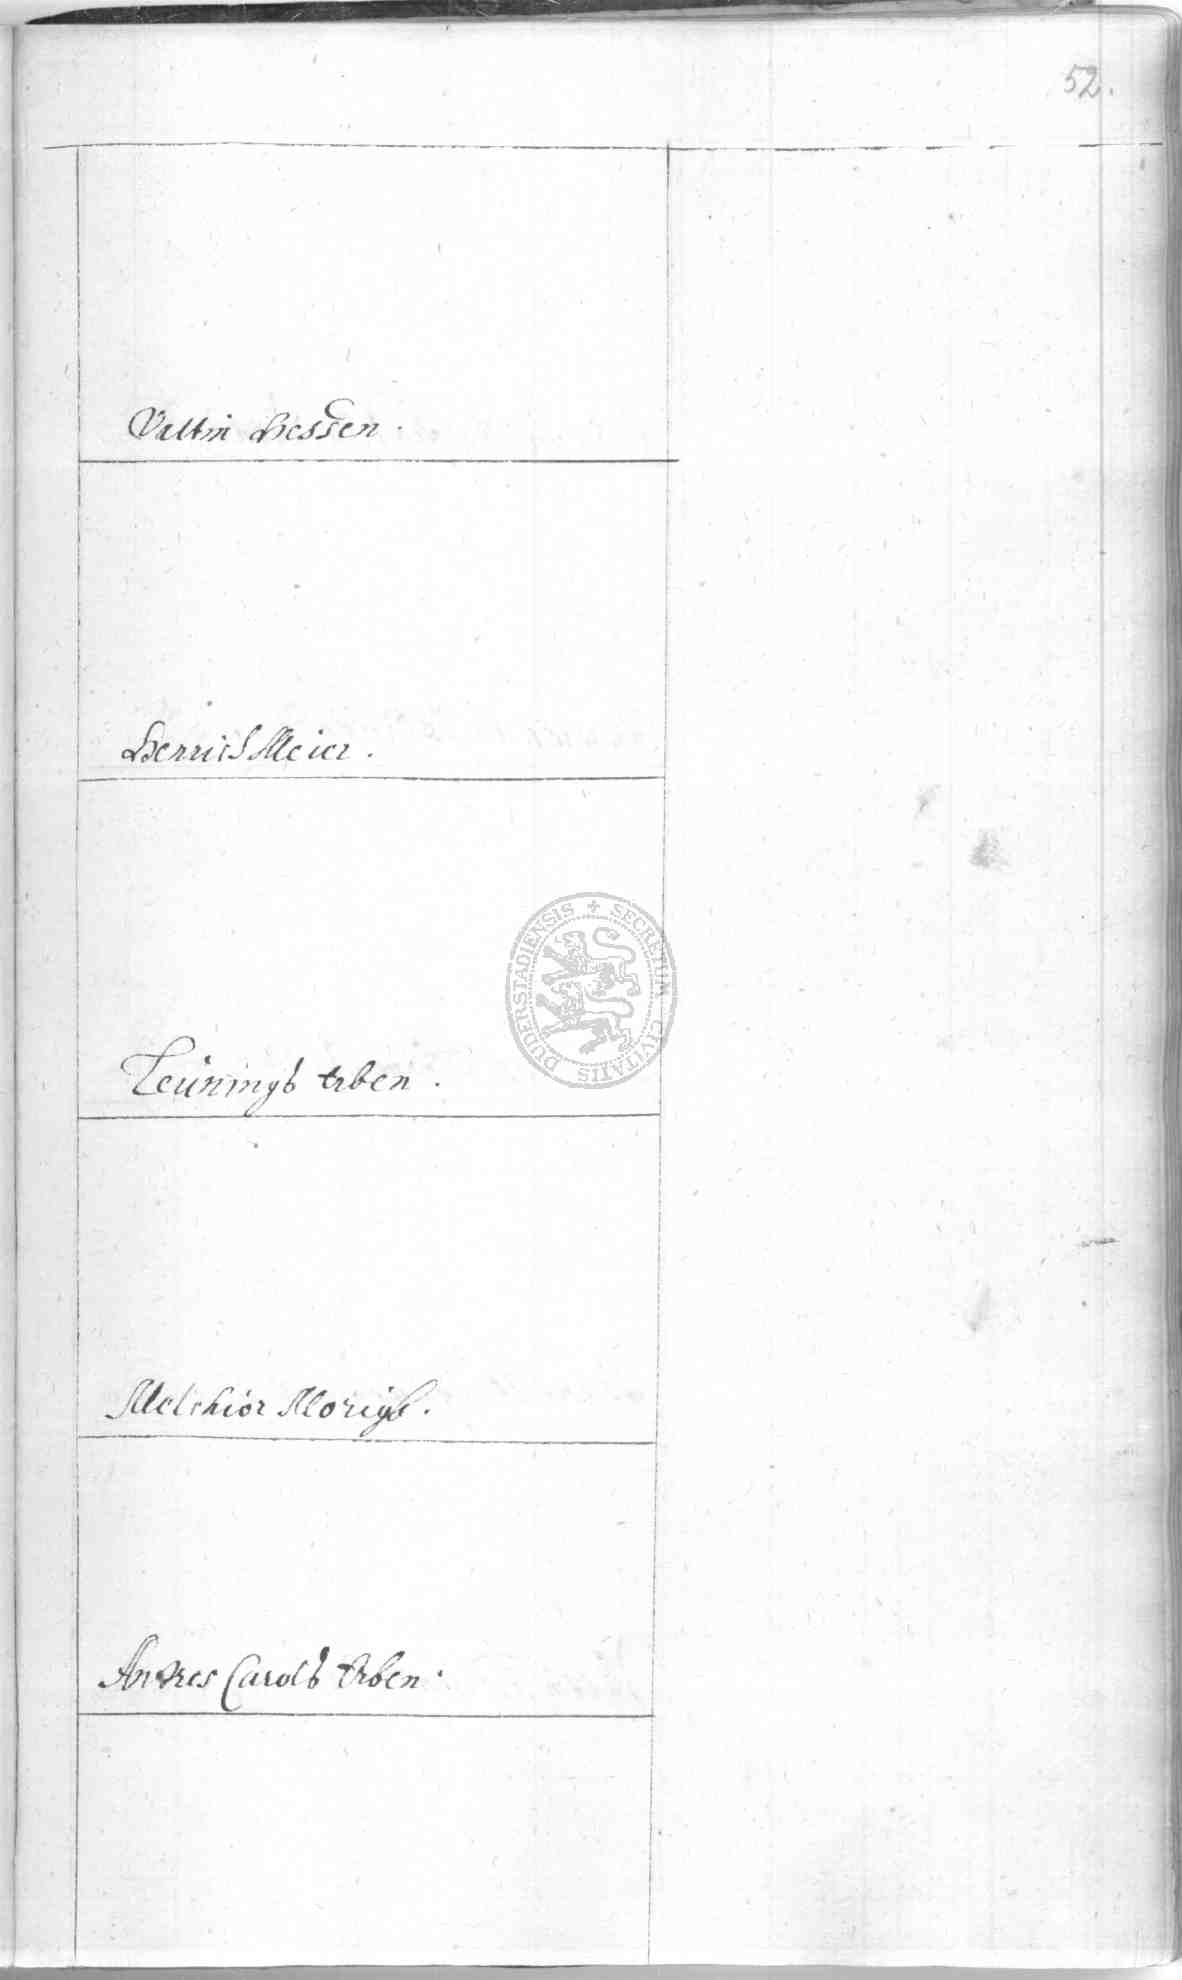 52.
Valtin Hessen.
Henrich Meier.
Leünings Erben.
DUDERSTADIENSIS + SECRETUM CIVITATIS
Melchior Morigs.
Andres Carols Erben.